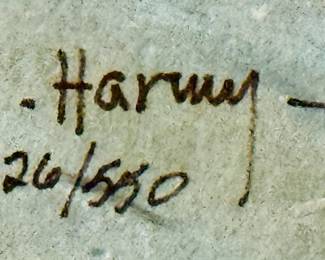 . Harvey -
26/550